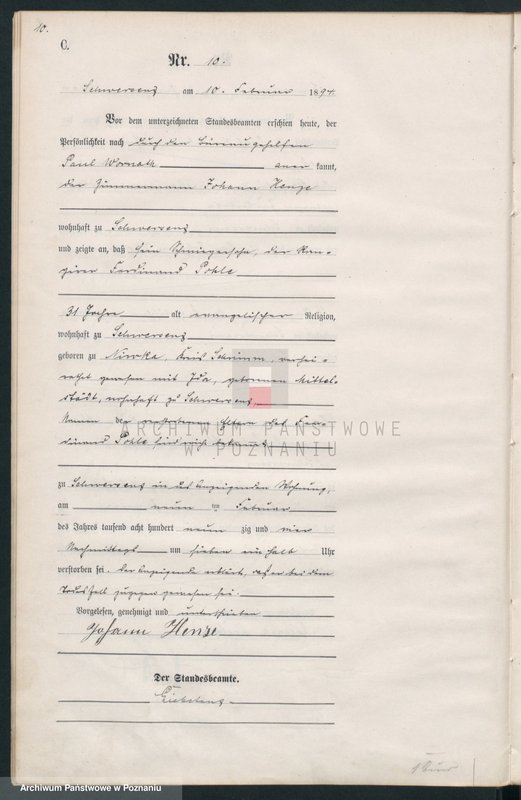 10.
C.
Nr. 10.
Schwersenz am 10. Februar 1894
Vor dem unterzeichneten Standesbeamten erschien heute, der
Persönlichkeit nach durch den Bureaugehilfen
Paul Wornath anerkannt,
der Zimmermann Johann Henze
wohnhaft zu Schwersenz
und zeigte an, daß sein Schwiegersohn, der Ran-
gierer Ferdinand Pohle
31 Jahre alt evangelischer Religion,
wohnhaft zu Schwersenz
geboren zu Niwka, Kreis Schrimm, verhei-
rathet gewesen mit Ida, geborenen Mittel-
städt, wohnhaft zu Schwersenz,
Namen der Eltern des Fer-
dinand Pohle sind nicht bekannt
ARCHIWUM PAŃSTWOWE
W POZNANIU
zu Schwersenz in des Anzeigenden Wohnung,
am neun ten Februar
des Jahres tausend acht hundert neunzig und vier
Nachmittags um sieben ein halb Uhr
verstorben sei. Der Anzeigende erklärt, daß er bei dem
Todesfall zugegen gewesen sei.
Vorgelesen, genehmigt und unterschrieben
Johann Henze
Der Standesbeamte.
Archiwum Państwowe w Poznaniu